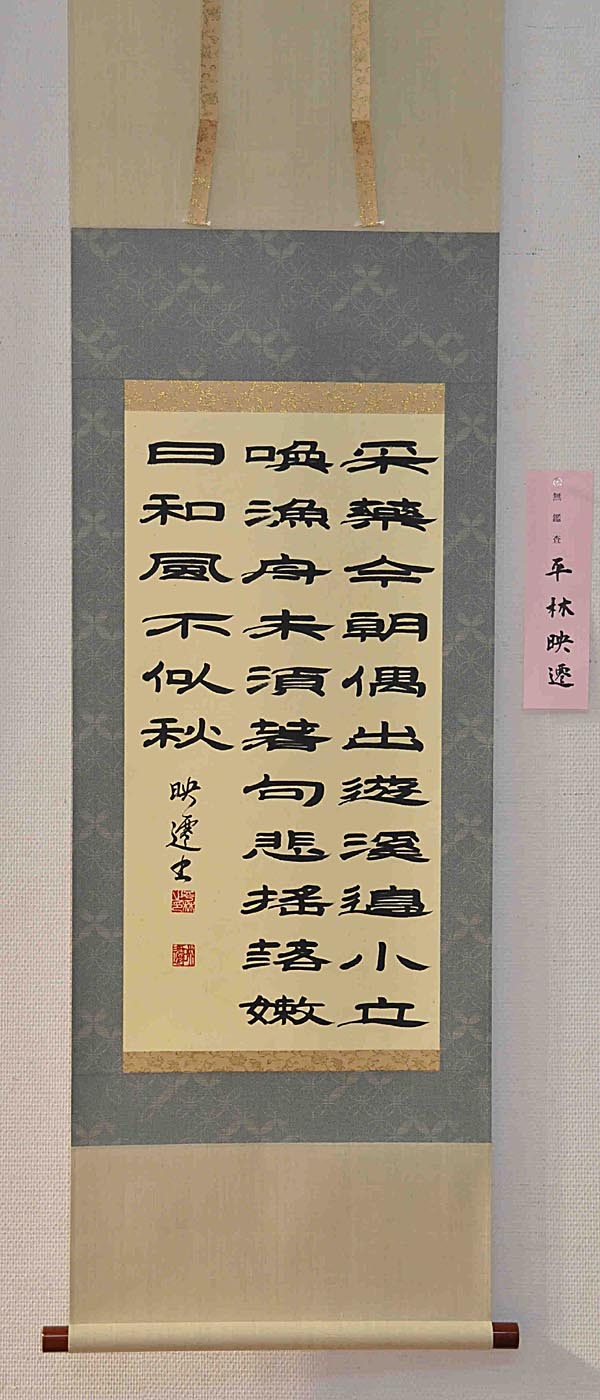 采藥今朝偶出遊溪邊小立
喚漁舟未須著句悲搖落嫩
日和風不似秋
映遷書
無鑑査
平林映遷